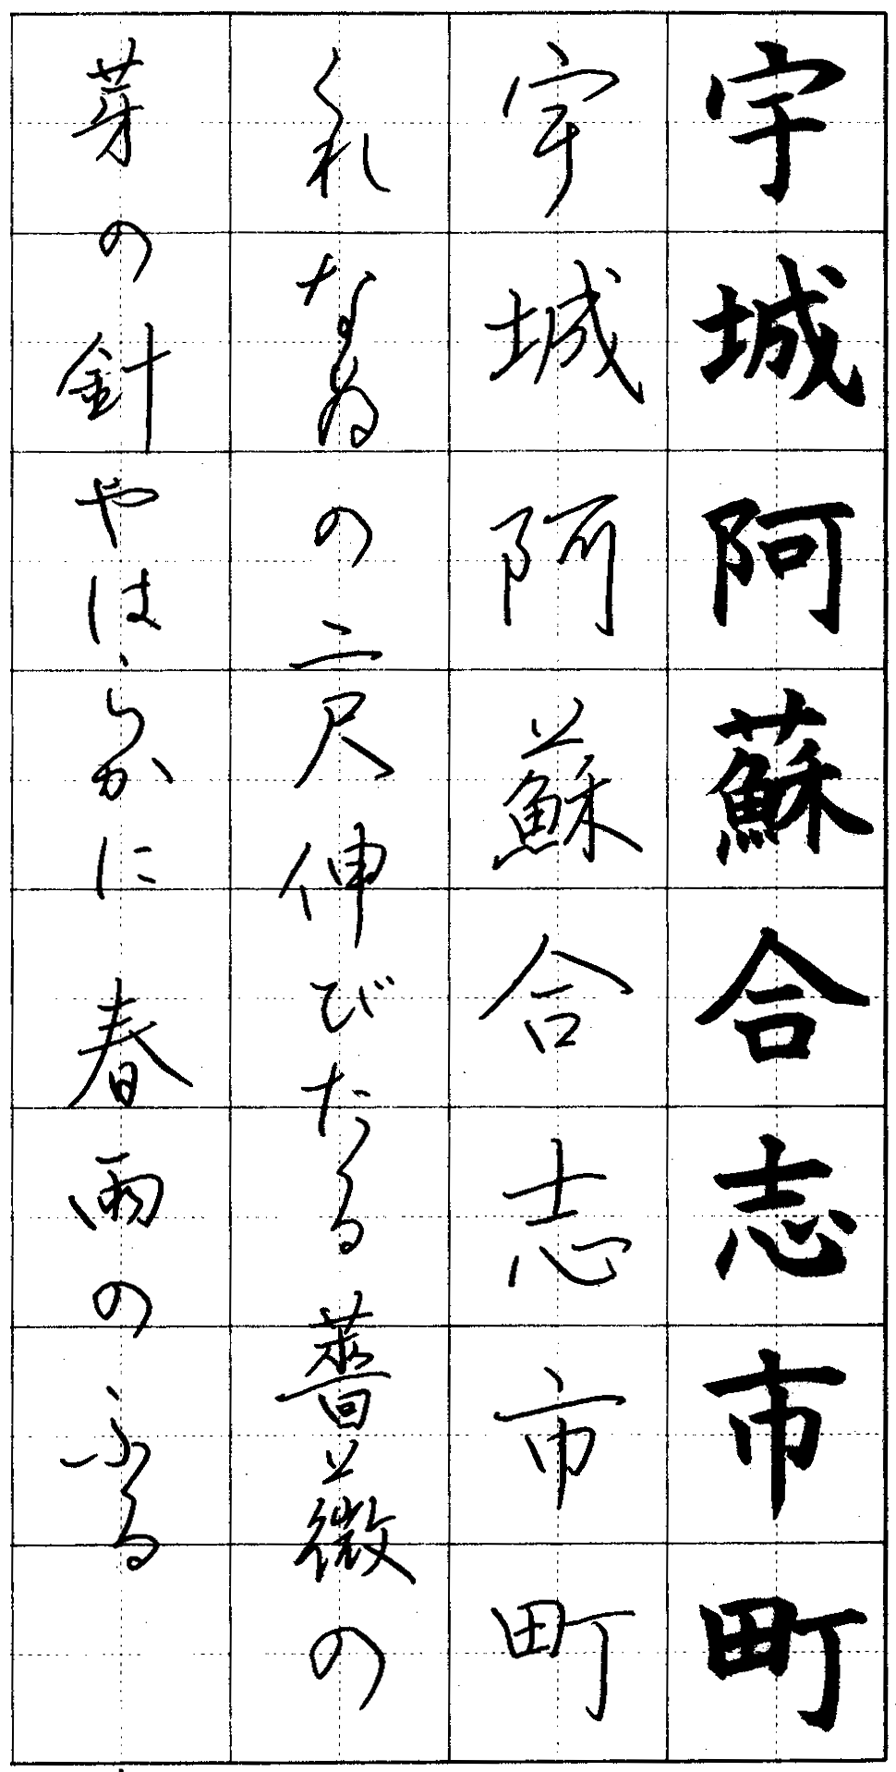 宇城阿蘇合志市町
宇城阿蘇合志市町
くれなゐの二尺伸びたる薔薇の
芽の針やはらかに春雨のふる